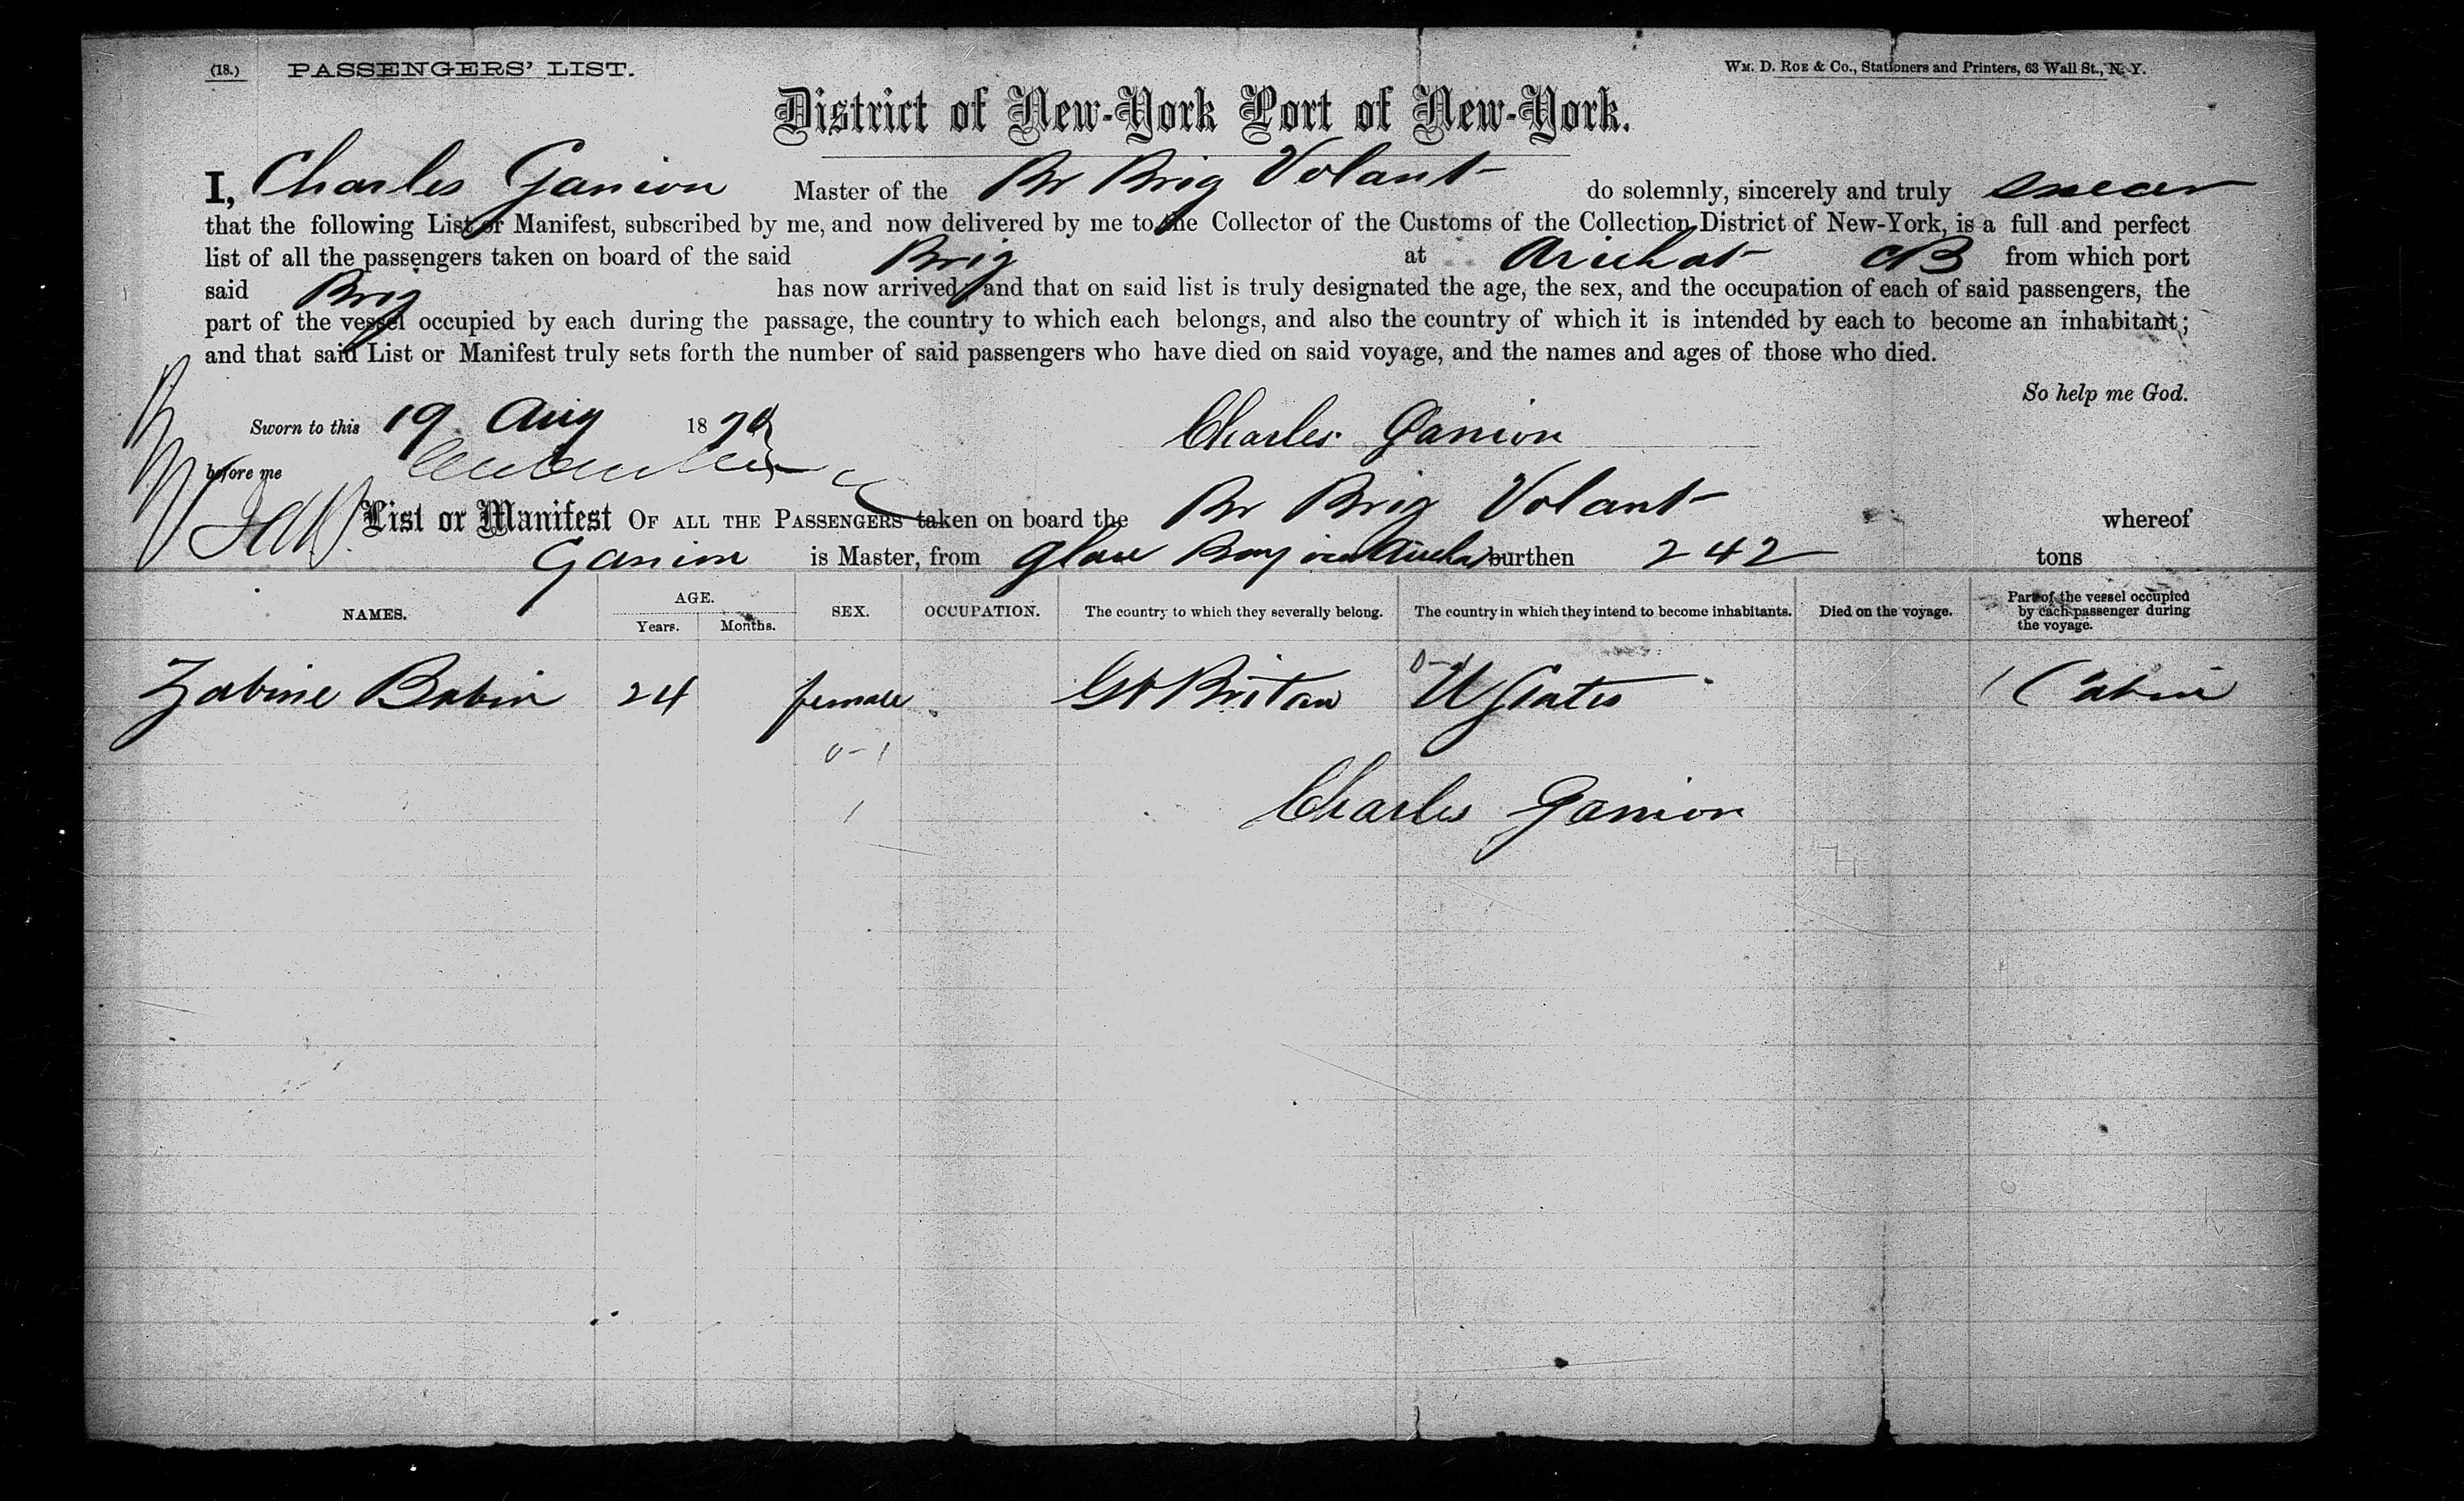 (18.) PASSENGERS' LIST.
WM. D. ROE & Co., Stationers and Printers, 63 Wall St., N. Y.
District of New-York Port of New-York.
I, Charles Ganion Master of the Br Brig Volant do solemnly, sincerely and truly swear
that the following List or Manifest, subscribed by me, and now delivered by me to the Collector of the Customs of the Collection District of New-York, is a full and perfect
list of all the passengers taken on board of the said Brig at Arichat CB from which port
said Brig has now arrived; and that on said list is truly designated the age, the sex, and the occupation of each of said passengers, the
part of the vessel occupied by each during the passage, the country to which each belongs, and also the country of which it is intended by each to become an inhabitant;
and that said List or Manifest truly sets forth the number of said passengers who have died on said voyage, and the names and ages of those who died.
So help me God.
Sworn to this 19 Aug 18 Charles Ganion
before me
List or Manifest OF ALL THE PASSENGERS taken on board the Br Brig Volant whereof
Ganion is Master, from Glace Bay via Arichat burthen 242 tons
NAMES. AGE. Years. Months. SEX. OCCUPATION. The country to which they severally belong. The country in which they intend to become inhabitants. Died on the voyage. Part of the vessel occupied by each passenger during the voyage.
Zabine Bobin 24 female Gt Britan U States Cabin
0-1
Charles Ganion